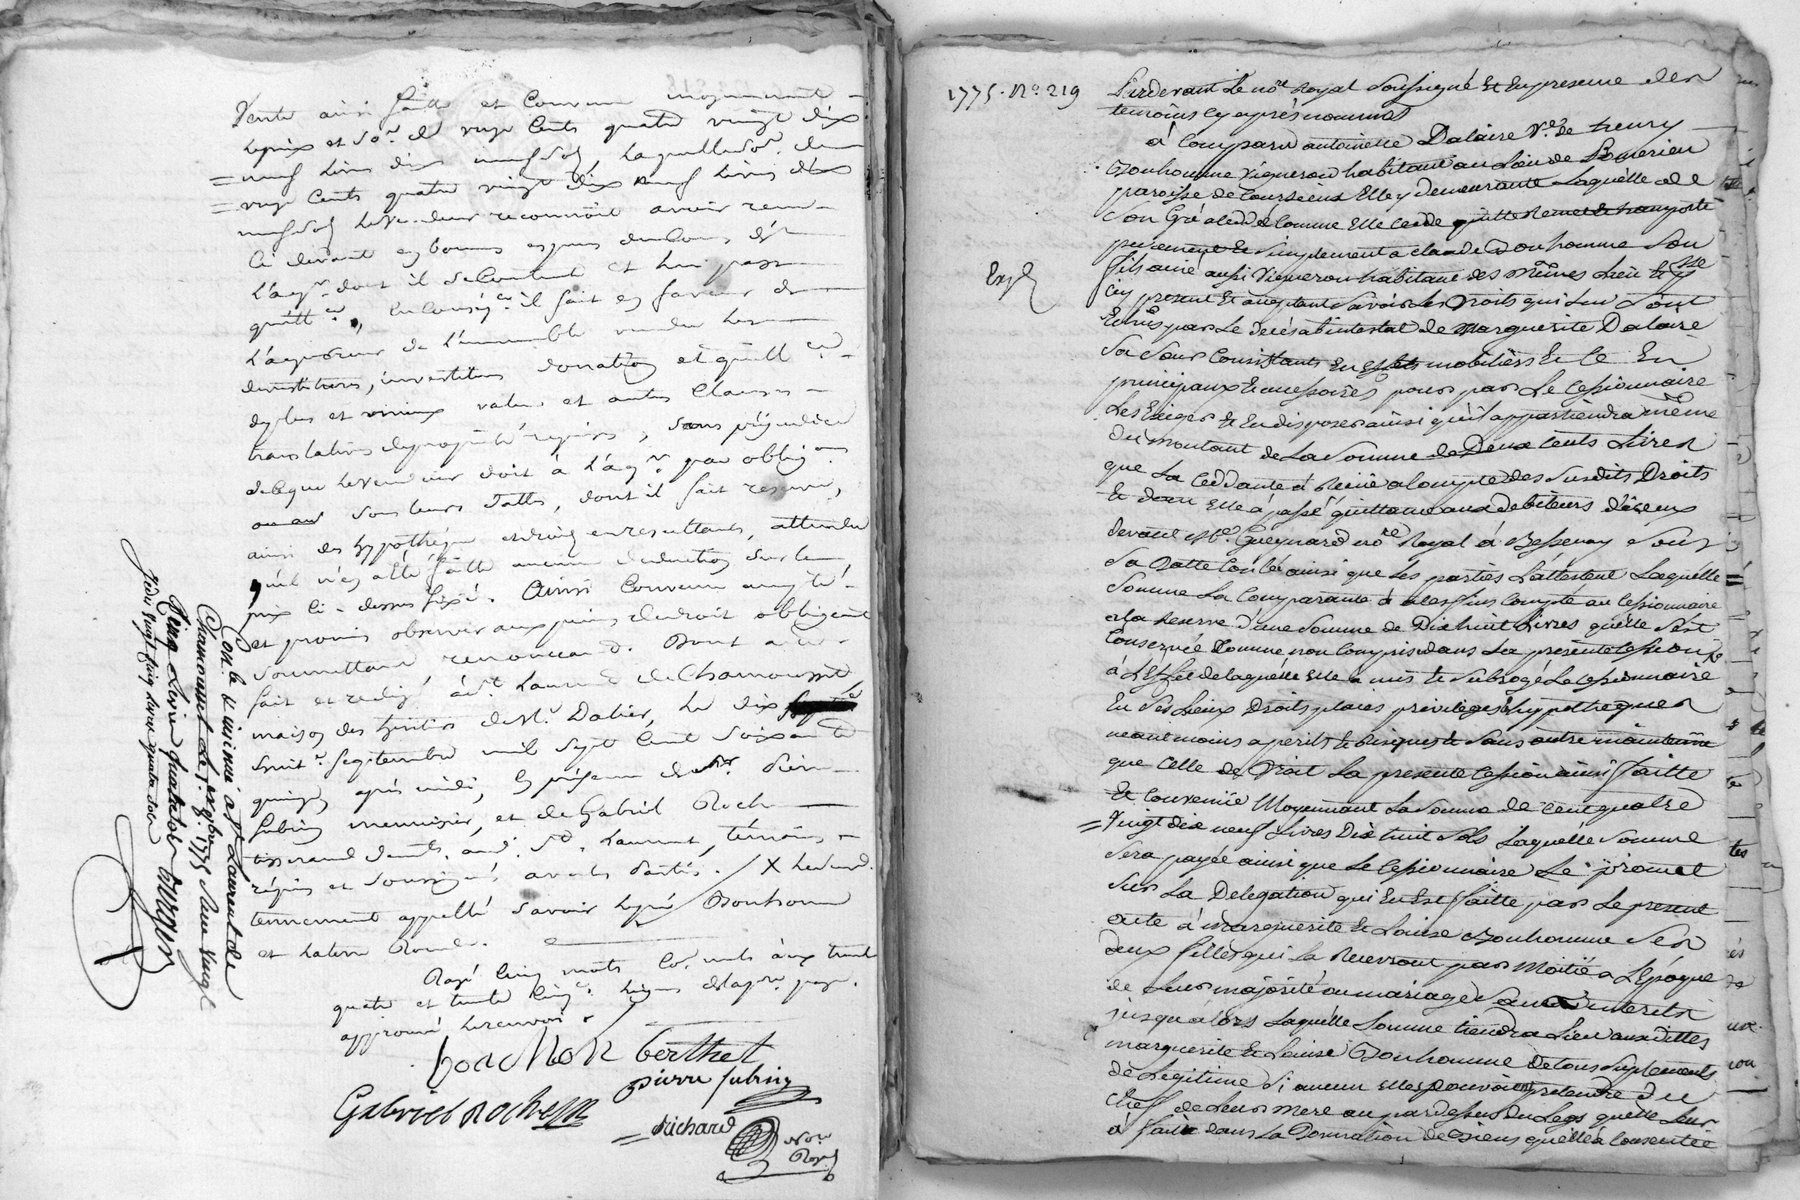 Vente ainsi faitte et Convenue moyennant
le prix et so.e de unze Cents quatre vingt dix
neuf livres dix neuf sols, laquelle so.e de
unze Cents quatre vingt dix neuf livres dix
neuf sols le vendeur reconnoit avoir reçu
Ci devant en bonnes espèces du Cours de
l'aq.r dont il se Contente et lui passe
quitt.ce, en Conséq.ce il fait en faveur de
l'acquéreur de l'immeuble vendu les
devestitures, investitures donation et quitt.ce
de plus et mieux value et autres Clauses
translatives de propriété requises, sans préjudice
de ce que le vendeur doit à l'aq.r par oblig.ons
sous leurs dattes, dont il fait reserve,
ainsi des hypothèques en resultants, attendu
qu'il n'en a été faitte aucune deduction sur le
prix Ci-dessus fixé. Ainsi Convenu accepté
et promis observer aux peines de droit obligeant
soumettant renonceant. Dont acte
fait et redigé à S.t Laurent de Chamousset
maison des héritiers de M.e Dalier, le dix
huit.e septembre mil sept Cent soixante
quinze après midi, en présence de Pierre
Subrin menuisier, et de Gabriel Roche
tisserand dem.ts aud. S.t Laurent, témoins
réquis et soussignés avec les parties. / X
tennement appellé savoir le pré Bonhome
et la terre
Rayé Cinq mots aux trente
quatre et trente Cinq.e lignes de la p.re page.
approuvé le renvoi
bonchon berthet
pierre subrin
Gabriel Roche
Richard Nore
Royal
Con.lé & insinué a S.t Laurent de
Chamousset Le 1775 Reçu Vingt
Cinq Livres quatre sols
1775. N.o 219
Expé
Pardevant Le no.re Royal soussigné Et En presence des
temoins cy après nommés
à Comparu antoinette Dalaire V.e de
Bonhomme vigneron habitant au Lieu de
paroisse de Coursieux Elle y demeurante Laquelle de
son Gré a Cedé Comme Elle Cede quitte Remet et transporte
purement Et simplement a claude Bonhomme son
fils ainé aussi vigneron habitant des mêmes Lieu Et p.sse
Cy present Et acceptant savoir Les Droits qui Lui sont
Echus par Le decès abintestat de marguerite Dalaire
sa sœur Consistants En Effets mobiliers Et Ce En
principaux Et accessoires pour par Le Cessionnaire
Les Exiger Et En disposer ainsi qu'il appartiendra même
du montant de La somme de Deux Cents Livres
que La Ceddante a Reçuë a Compte des susdits Droits
Et dont Elle a passé quittance aux debiteurs d'iceux
devant M.e Gueynard no.re Royal à Bessenay sous
sa Datte ainsi que Les parties L'attestent Laquelle
somme La Comparante a Compte au Cessionnaire
a La Reserve d'une somme de Dix huit Livres qu'elle s'est
Conservée Comme non Comprise dans La presente Cession
à L'Effet de laquelle Elle a mis Et subrogé Le Cessionnaire
En ses Lieux Droits places privileges Et hypotheques
néantmoins a perils Et Risques Et sans autre maintenue
que Celle de Droit La presente Cession ainsi faitte
Et Convenüe Moyennant La somme de Cent quatre
Vingt Dix neuf Livres Dix huit sols Laquelle somme
sera payée ainsi que Le Cessionnaire Le promet
sur La Delegation qui En Est faitte par Le present
acte à marguerite Et Louise Bonhomme ses
deux filles qui La Recevront par Moitié a L'Epoque
de Leur majorité ou mariage sans interêts
jusqu'alors Laquelle somme tiendra Lieu aux dittes
marguerite Et Louise Bonhomme De tous suplements
de Legitime si aucun Elles pouvoient pretendre du
Chef de Leur mere au par dessus du Legs qu'elle Leur
a fait dans La Donnation de Biens qu'elle a Consentie